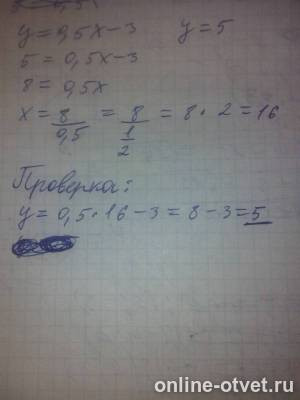 y = 0,5x - 3 y = 5
5 = 0,5x - 3
8 = 0,5x
x = 8/0,5 = 8/(1/2) = 8 · 2 = 16
Проверка:
y = 0,5 · 16 - 3 = 8 - 3 = 5
online-otvet.ru